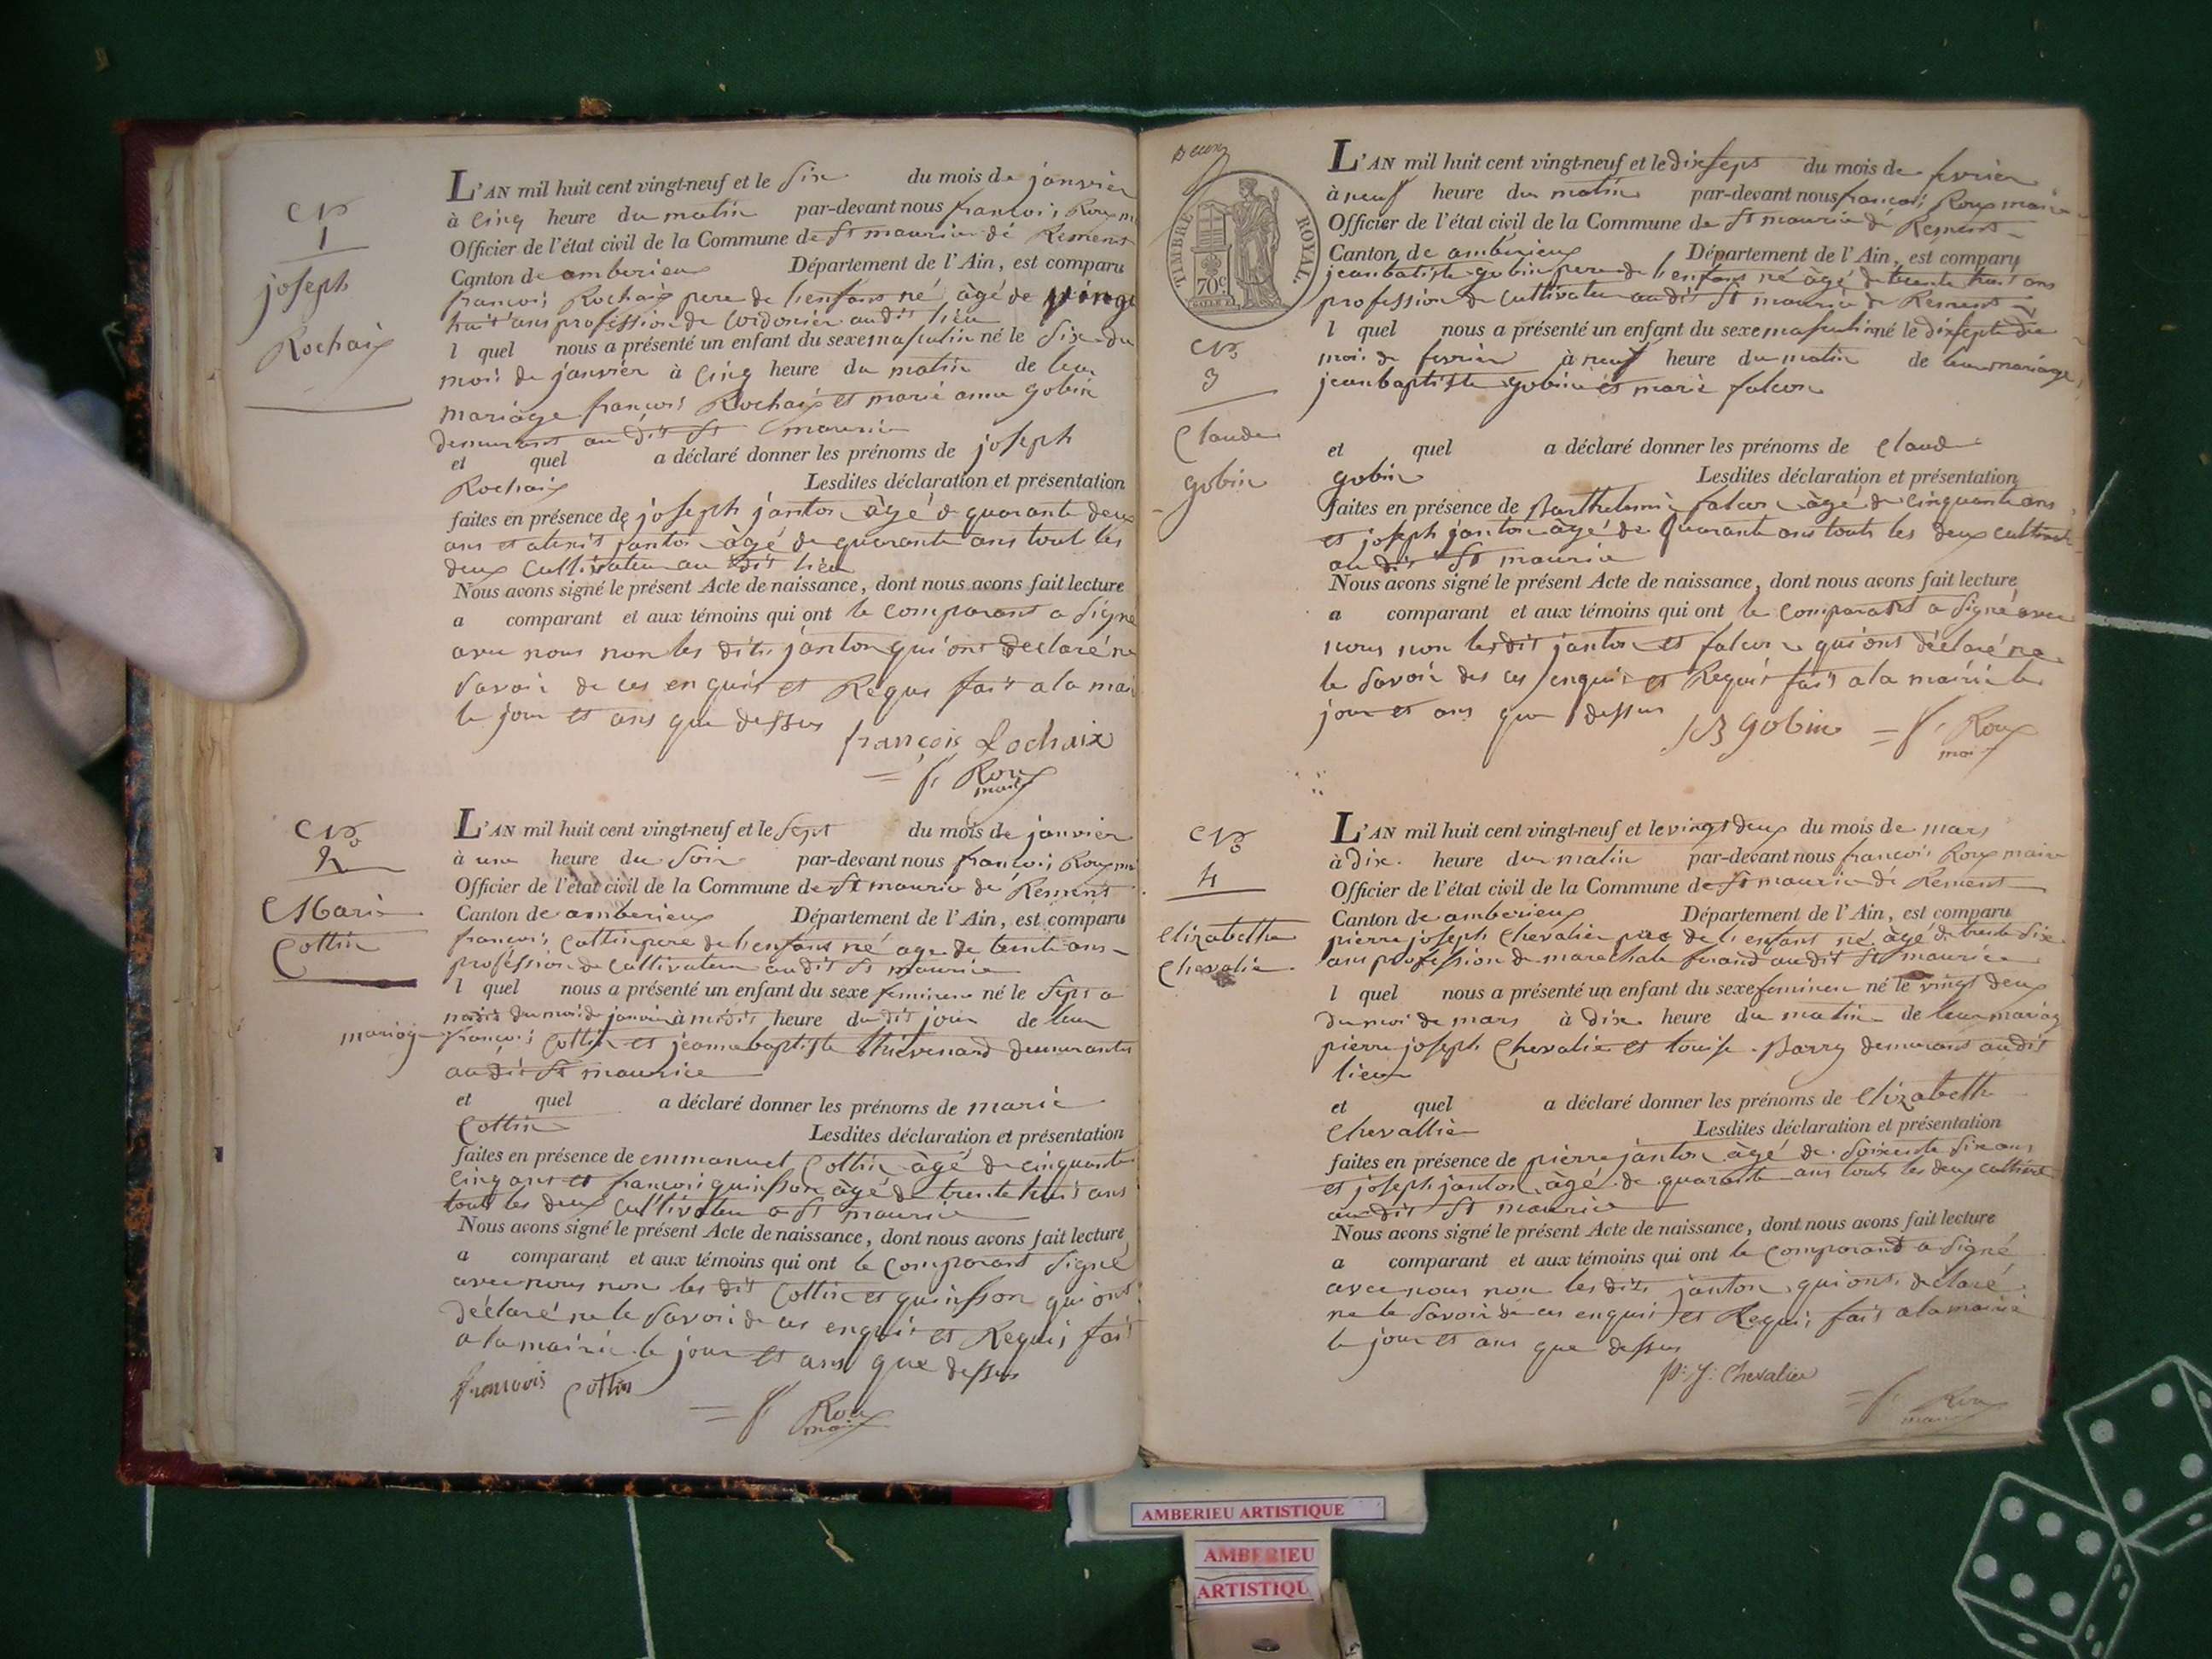 N°
1
joseph
Rochaix
L'AN mil huit cent vingt-neuf et le six du mois de janvier
à cinq heure du matin par-devant nous francois Roux m
Officier de l'état civil de la Commune de St maurice de Remens
Canton de amberieux Département de l'Ain, est comparu
francois Rochaix pere de l'enfans né âgé de vingt
huit ans profession de cordonier au dit lieu
l quel nous a présenté un enfant du sexe masculin né le six du
mois de janvier à cinq heure du matin de leur
mariage francois Rochaix et marie anne gobin
demurant au dit St maurice
et quel a déclaré donner les prénoms de joseph
Rochaix Lesdites déclaration et présentation
faites en présence de joseph janton âgé de quarante deux
ans et alexis janton âgé de quarante ans tout les
deux cultivateur au dit lieu
Nous avons signé le présent Acte de naissance, dont nous avons fait lecture
a comparant et aux témoins qui ont le comparant a signé
avec nous non les dits janton qui ont declaré ne
savoir de ces enquis et Requis fait a la mai
le jour et ans que dessus
françois Rochaix
= f. Roux
maire
N°
2
Marie
Cottin
L'AN mil huit cent vingt-neuf et le sept du mois de janvier
à une heure du soir par-devant nous francois Roux m
Officier de l'état civil de la Commune de St maurice de Remens
Canton de amberieux Département de l'Ain, est comparu
francois Cottin pere de l'enfans né age de trente ans
proféssion de cultivateur au dit St maurice
l quel nous a présenté un enfant du sexe feminen né le sept a
midis du moi de janvier à midis heure du dit jour de leur
mariage francois Cottin et jeanne baptiste thévenard demurantes
au dit St maurice
et quel a déclaré donner les prénoms de marie
Cottin Lesdites déclaration et présentation
faites en présence de emmanuel Cottin âgé de cinquante
cinq ans et francois quinsson âgé de trente huit ans
tout les deux cultivateur a St maurice
Nous avons signé le présent Acte de naissance, dont nous avons fait lecture
a comparant et aux témoins qui ont le comparant signé
avec nous non les dit Cottin et quinsson qui ont
déclaré ne le savoir de ces enquis et Requis fait
a la mairie le jour et ans que dessus
francois Cottin
= f. Roux
maire
Deux
TIMBRE ROYAL
70c
N°
3
Claude
gobin
L'AN mil huit cent vingt-neuf et le dix sept du mois de fevrier
à neuf heure du matin par-devant nous francois Roux maire
Officier de l'état civil de la Commune de St maurice de Remens
Canton de amberieux Département de l'Ain, est comparu
jean batiste gobin pere de l'enfans né âgé de trente huit ans
profession de cultivateur au dit St maurice de Remens
l quel nous a présenté un enfant du sexe masculin né le dix sept du
mois de fevrier à neuf heure du matin de leur mariage
jean baptiste gobin et marie falcon
et quel a déclaré donner les prénoms de Claud
gobin Lesdites déclaration et présentation
faites en présence de Barthelemi falcon âgé de cinquante ans
et joseph janton âgé de quarante ans touts les deux cultivat
au dit St maurice
Nous avons signé le présent Acte de naissance, dont nous avons fait lecture
a comparant et aux témoins qui ont le comparant a signé avec
nous non les dit janton et falcon qui ont déclaré ne
le savoir des ces enquis et Requis fait a la mairie le
jour et ans que dessus
JB gobin = f. Roux
mai
N°
4
Elizabethe
Chevalie
L'AN mil huit cent vingt-neuf et le vingt deux du mois de mars
à dix heure du matin par-devant nous francois Roux maire
Officier de l'état civil de la Commune de St maurice de Remens
Canton de amberieux Département de l'Ain, est comparu
pierre joseph Chevalier père de l'enfant né âgé de trente six
ans profession de marechale ferand au dit St maurice
l quel nous a présenté un enfant du sexe feminen né le vingt deux
du moi de mars à dix heure du matin de leur mariag
pierre joseph Chevalie et louise Barry demurant au dit
lieu
et quel a déclaré donner les prénoms de Elizabeth
Chevallie Lesdites déclaration et présentation
faites en présence de pierre janton âgé de soixente six ans
et joseph janton âgé de quarante ans touts les deux cultivat
au dit St maurice
Nous avons signé le présent Acte de naissance, dont nous avons fait lecture
a comparant et aux témoins qui ont le comparand a signé
avec nous non les dits janton qui ont déclaré
ne le savoir de ces enquis et Requis fait a la mairie
le jour et ans que dessus
p: j: Chevalier
= f. Roux
maire
AMBERIEU ARTISTIQUE
AMBERIEU
ARTISTIQU